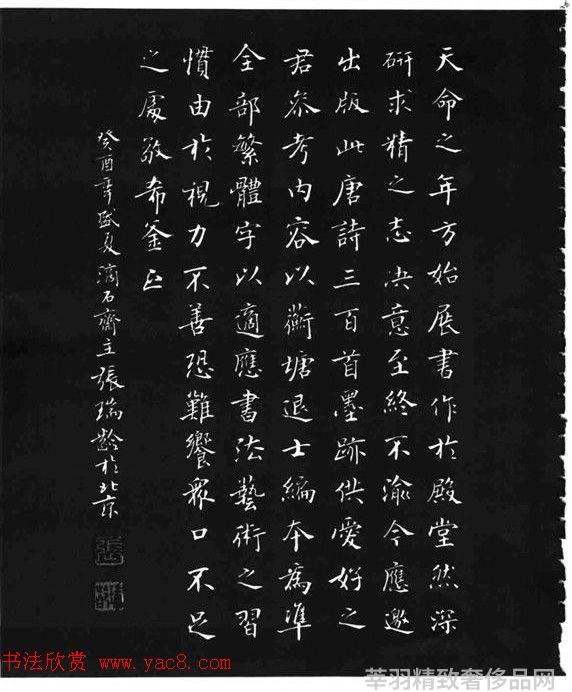 天命之年方始展書作於殿堂然深
研求精之志决意至終不渝今應邀
出版此唐詩三百首墨跡供愛好之
君参考内容以蘅塘退士編本為準
全部繁體字以適應書法藝術之習
慣由於視力不善恐難饗眾口不足
之處敬希釜正
癸酉年盛夏滴石齋主張瑞齡於北京
书法欣赏 www.yac8.com
莘羽精致奢侈品网